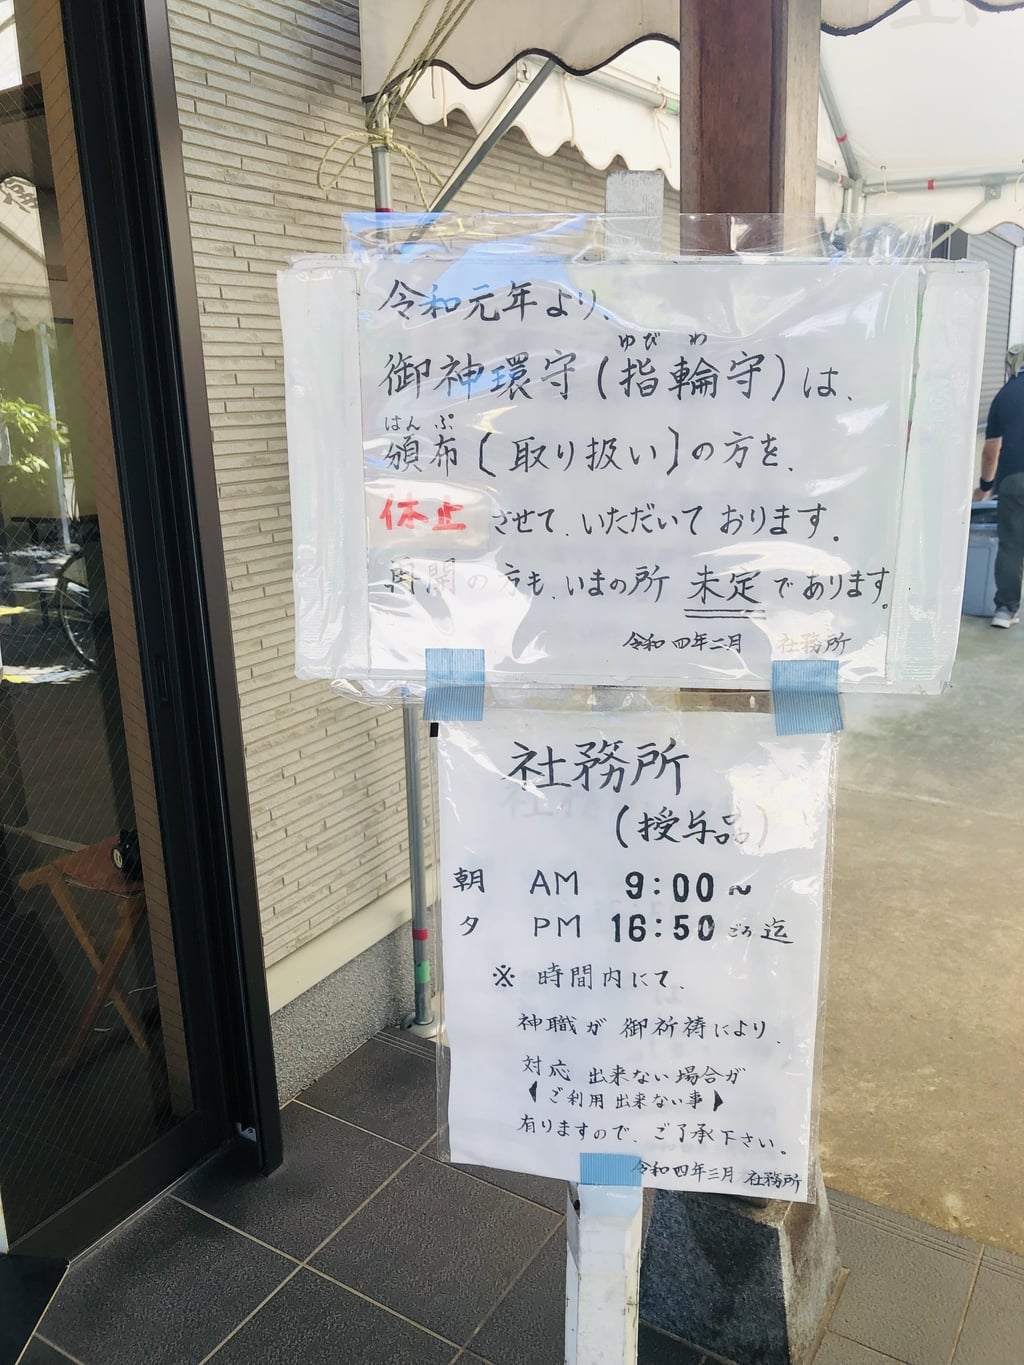 令和元年より、
ゆびわ
御神環守(指輪守)は、
はんぷ
頒布〔取り扱い〕の方を、
休止させて、いただいております。
再開の方も、いまの所 未定であります。
令和四年二月 社務所
社務所
(授与品)
朝 AM 9:00~
夕 PM 16:50ごろ迄
※ 時間内にて、
神職が御祈祷により、
対応出来ない場合が
【ご利用出来ない事】
有りますので、ご了承下さい。
令和四年三月 社務所